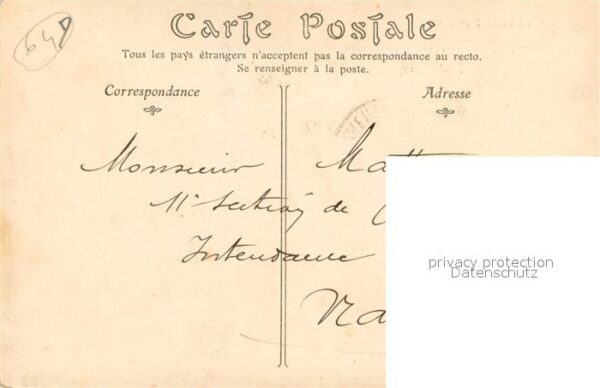 64
Carte Postale
Tous les pays étrangers n'acceptent pas la correspondance au recto.
Se renseigner à la poste.
Correspondance
Adresse
Monsieur Matt
11e Section de
Intendance
Na
privacy protection
Datenschutz